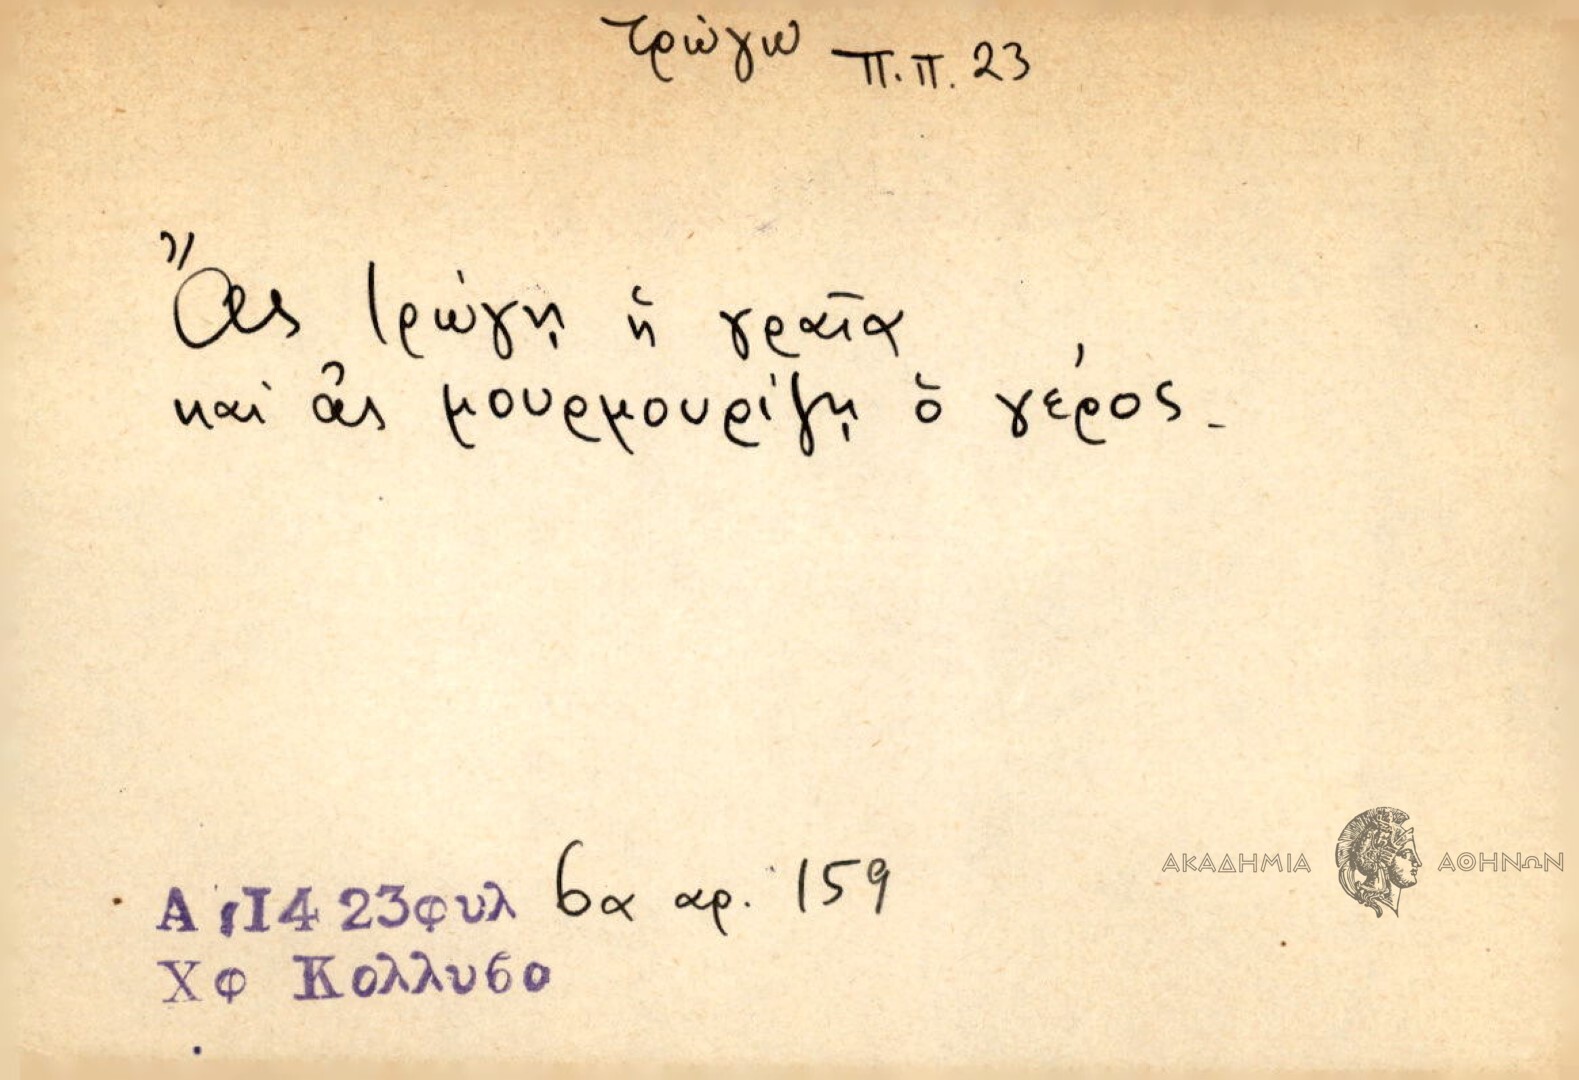 τρώγω π.π. 23
Ἄς τρώγῃ ἡ γραῖα
καὶ ἄς μουρμουρίζῃ ὁ γέρος.
Α,Ι4 23φυλ 6α αρ. 159
Χφ Κολλυβο
ΑΚΑΔΗΜΙΑ ΑΘΗΝΩΝ